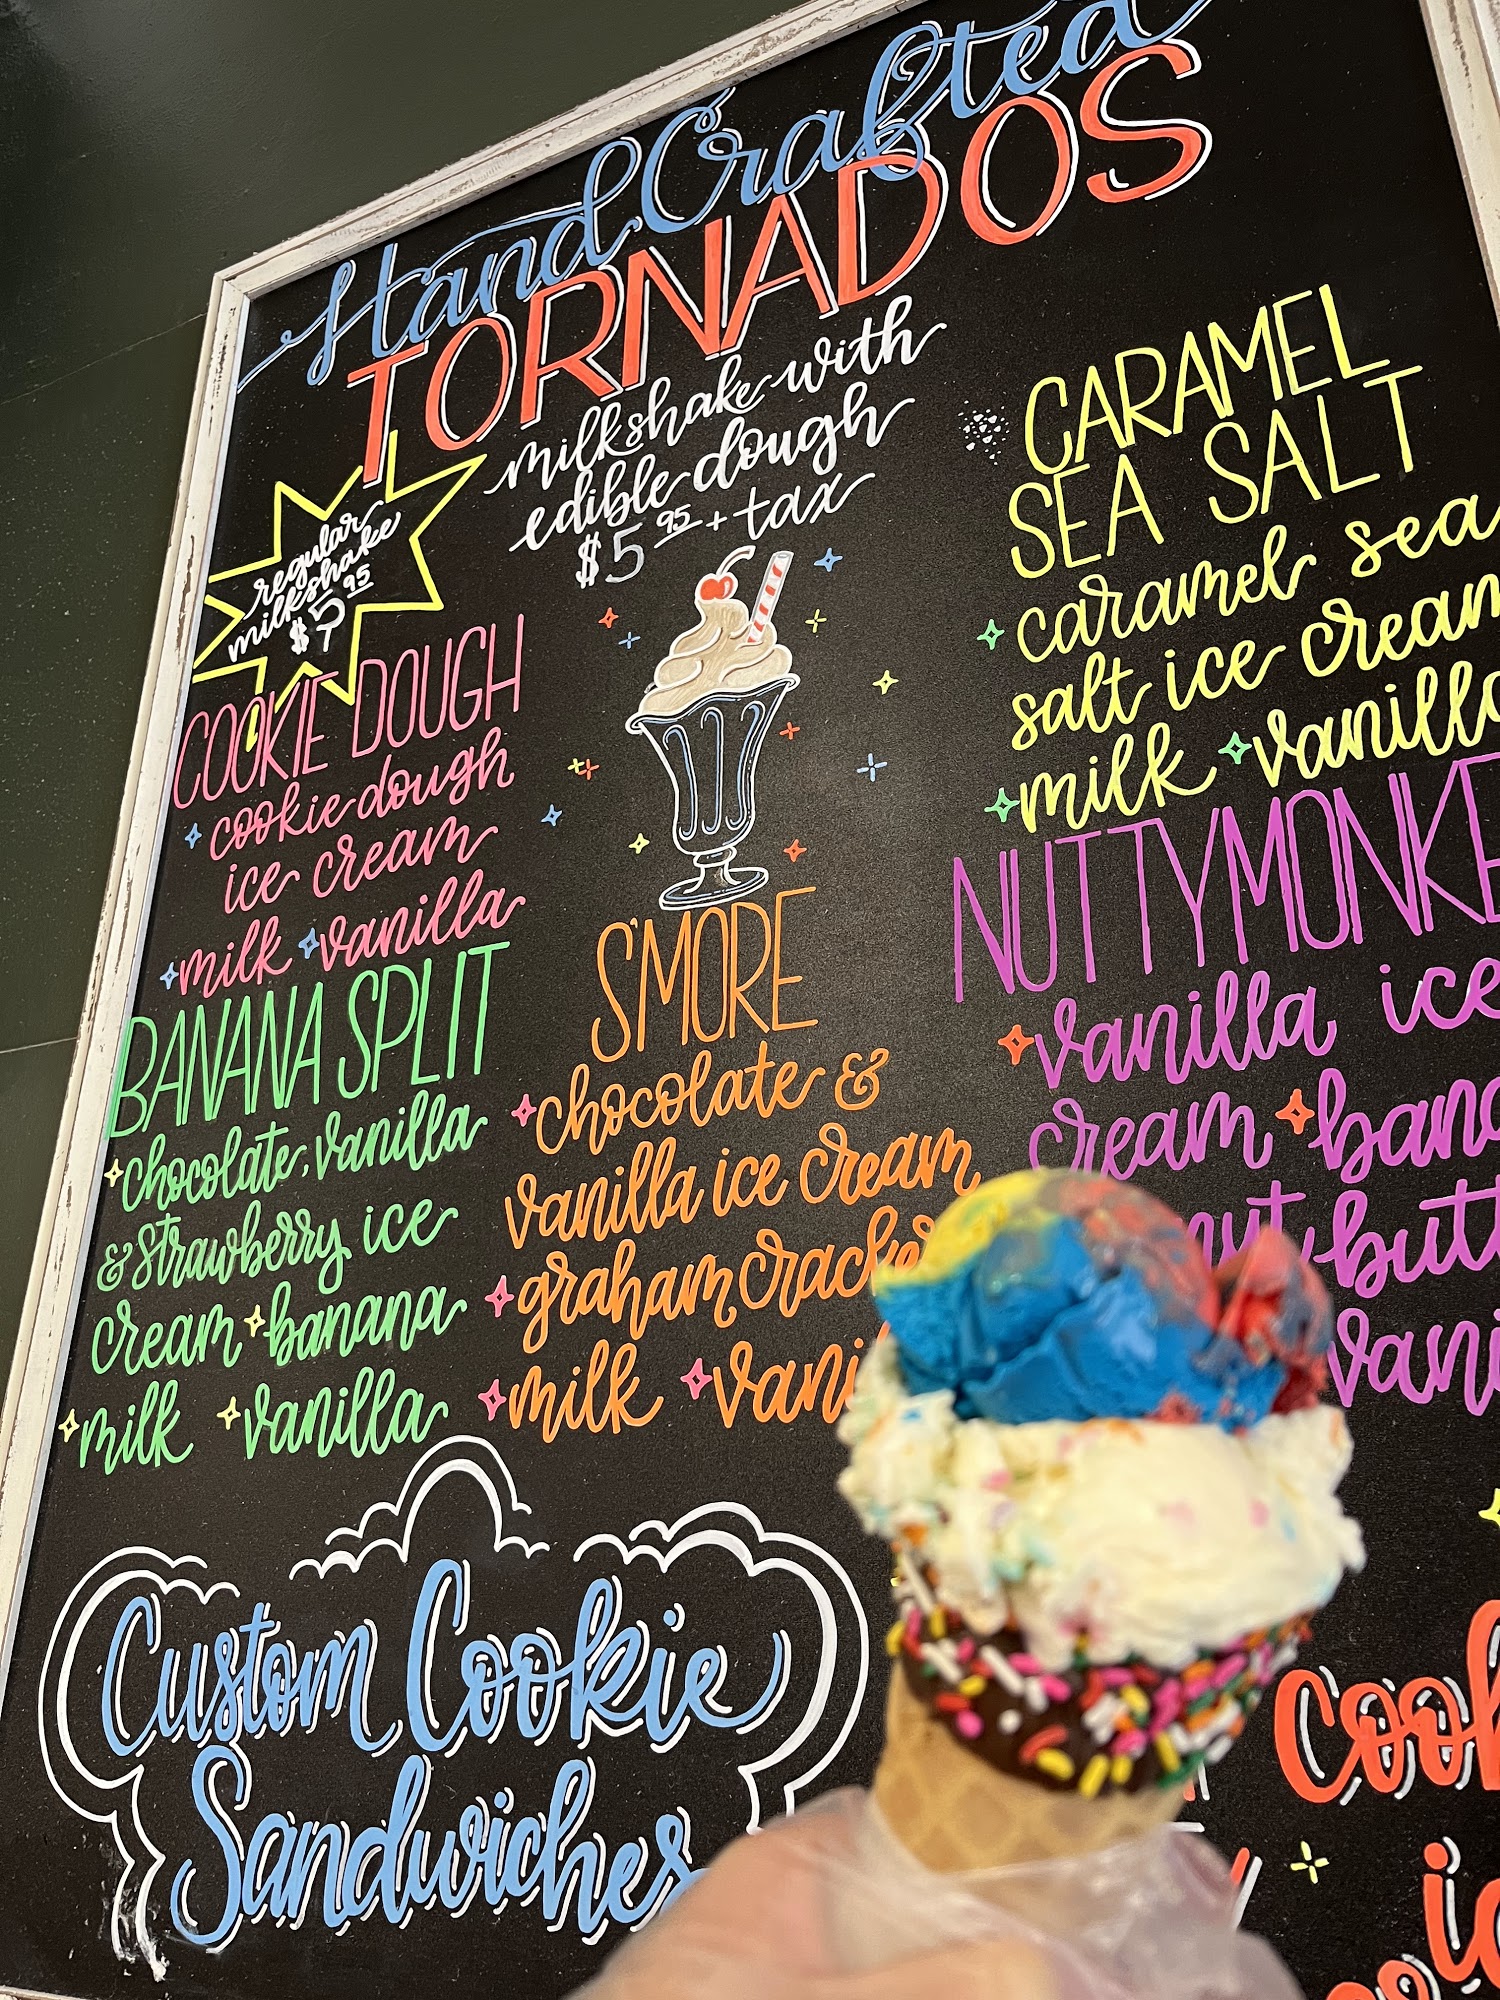 Hand Crafted
TORNADOS
milkshake with
edible dough
$5 95 + tax
regular
milkshake
$5 95
COOKIE DOUGH
cookie dough
ice cream
milk vanilla
BANANA SPLIT
chocolate, vanilla
& strawberry ice
cream banana
milk vanilla
S'MORE
chocolate &
vanilla ice cream
graham cracke
milk vani
CARAMEL
SEA SALT
caramel sea
salt ice cream
milk vanilla
NUTTY MONKE
vanilla ice
cream bana
nut butt
vani
Custom Cookie
Sandwiches
Cook
ic